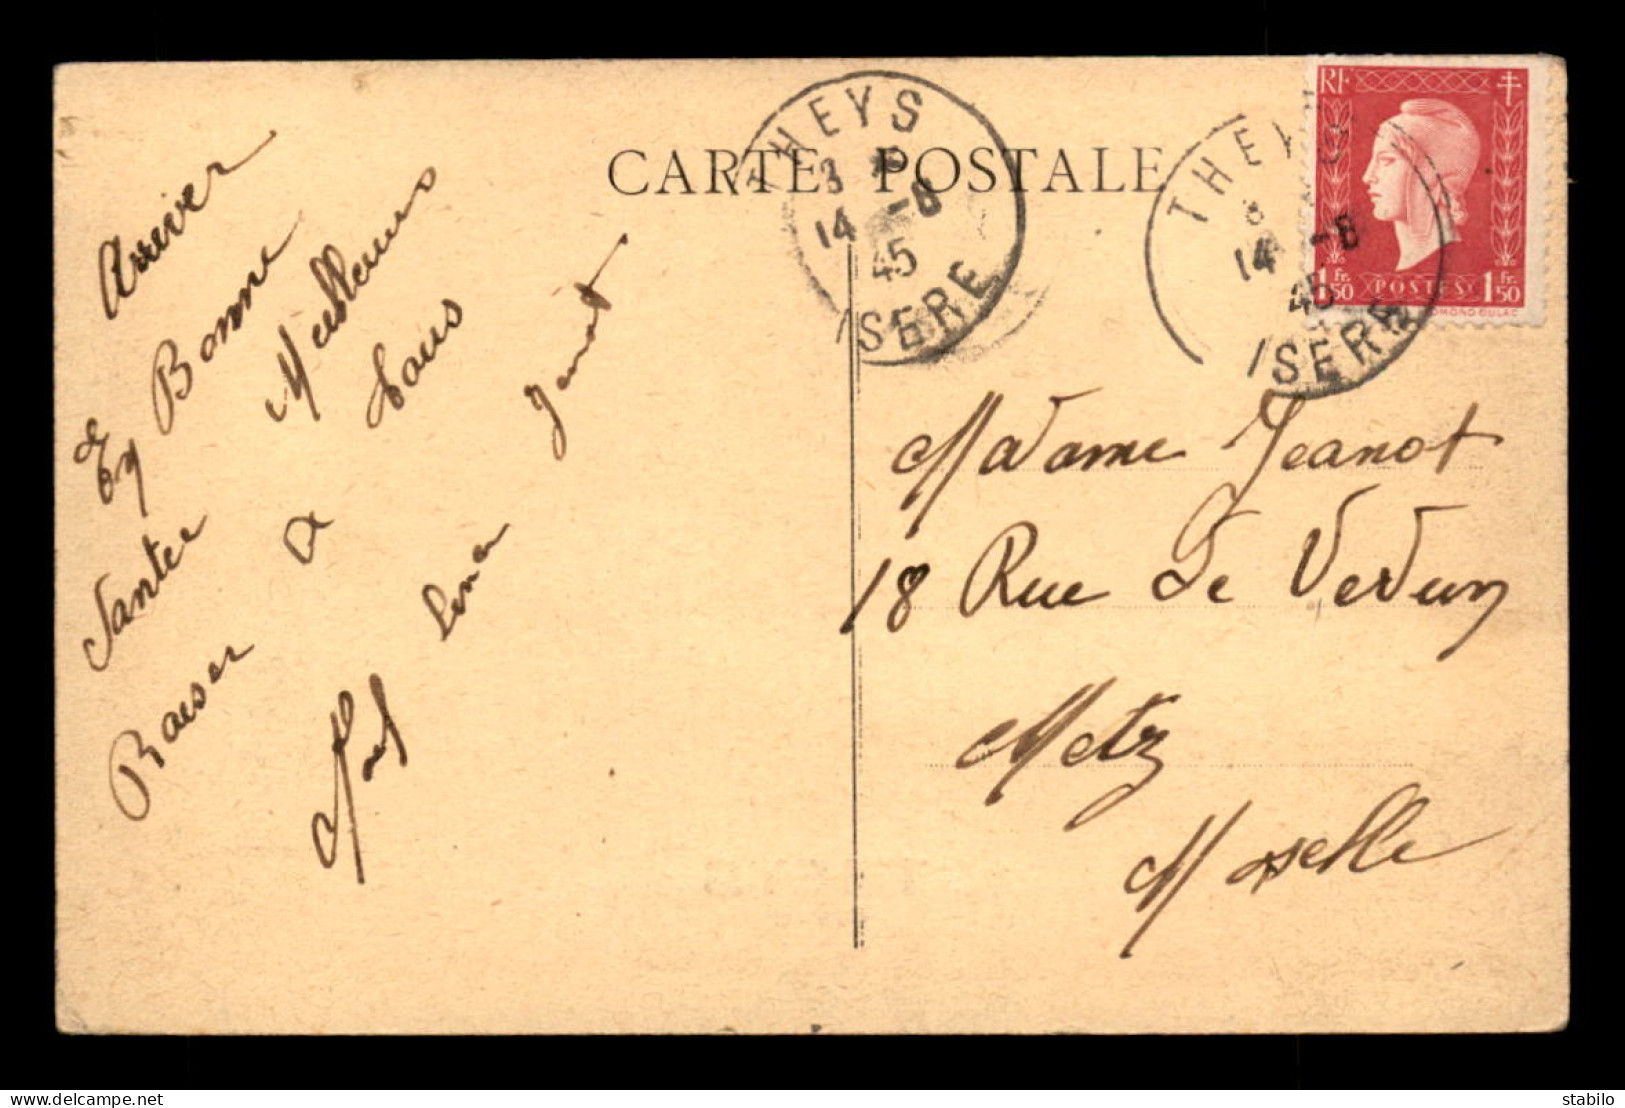 CARTE POSTALE
THEYS
14 -8
45
ISERE
THEYS
14 -8
45
ISERE
RF
1 Fr. 50
POSTES
1 Fr. 50
Arriver
En Bonne
Santee Meilleurs
Baiser a tous
Lina Janot
Madame Jeanot
18 Rue De Verdun
Metz
Moselle
delcampe.net
stabilo